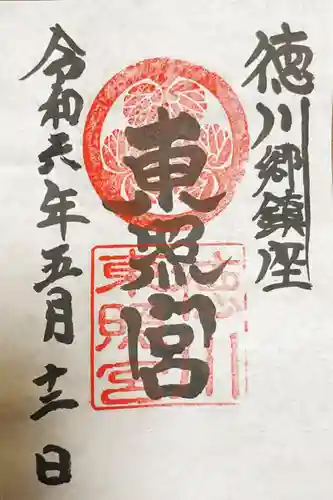 徳川郷鎮座
東照宮
令和元年五月十二日